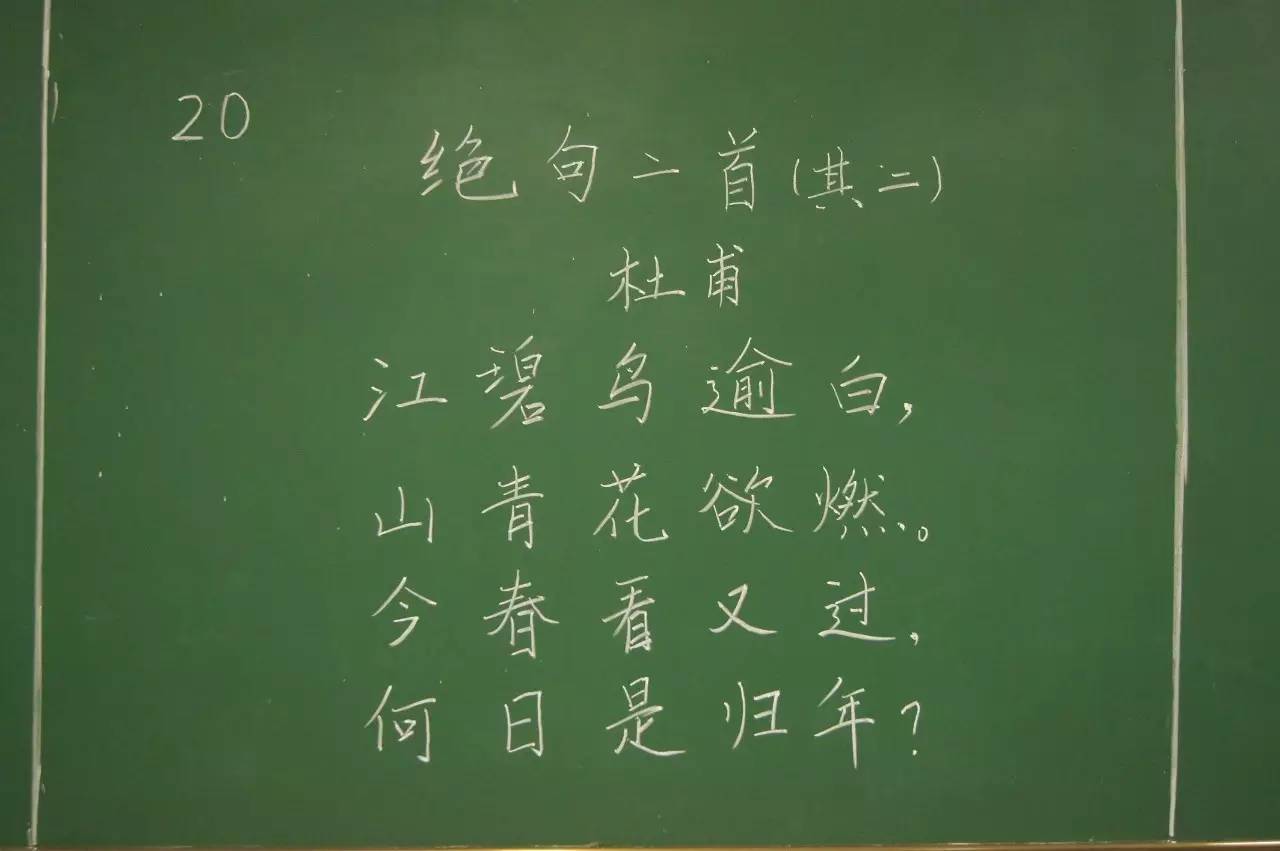 20
绝句二首(其二)
杜甫
江碧鸟逾白,
山青花欲燃。
今春看又过,
何日是归年?